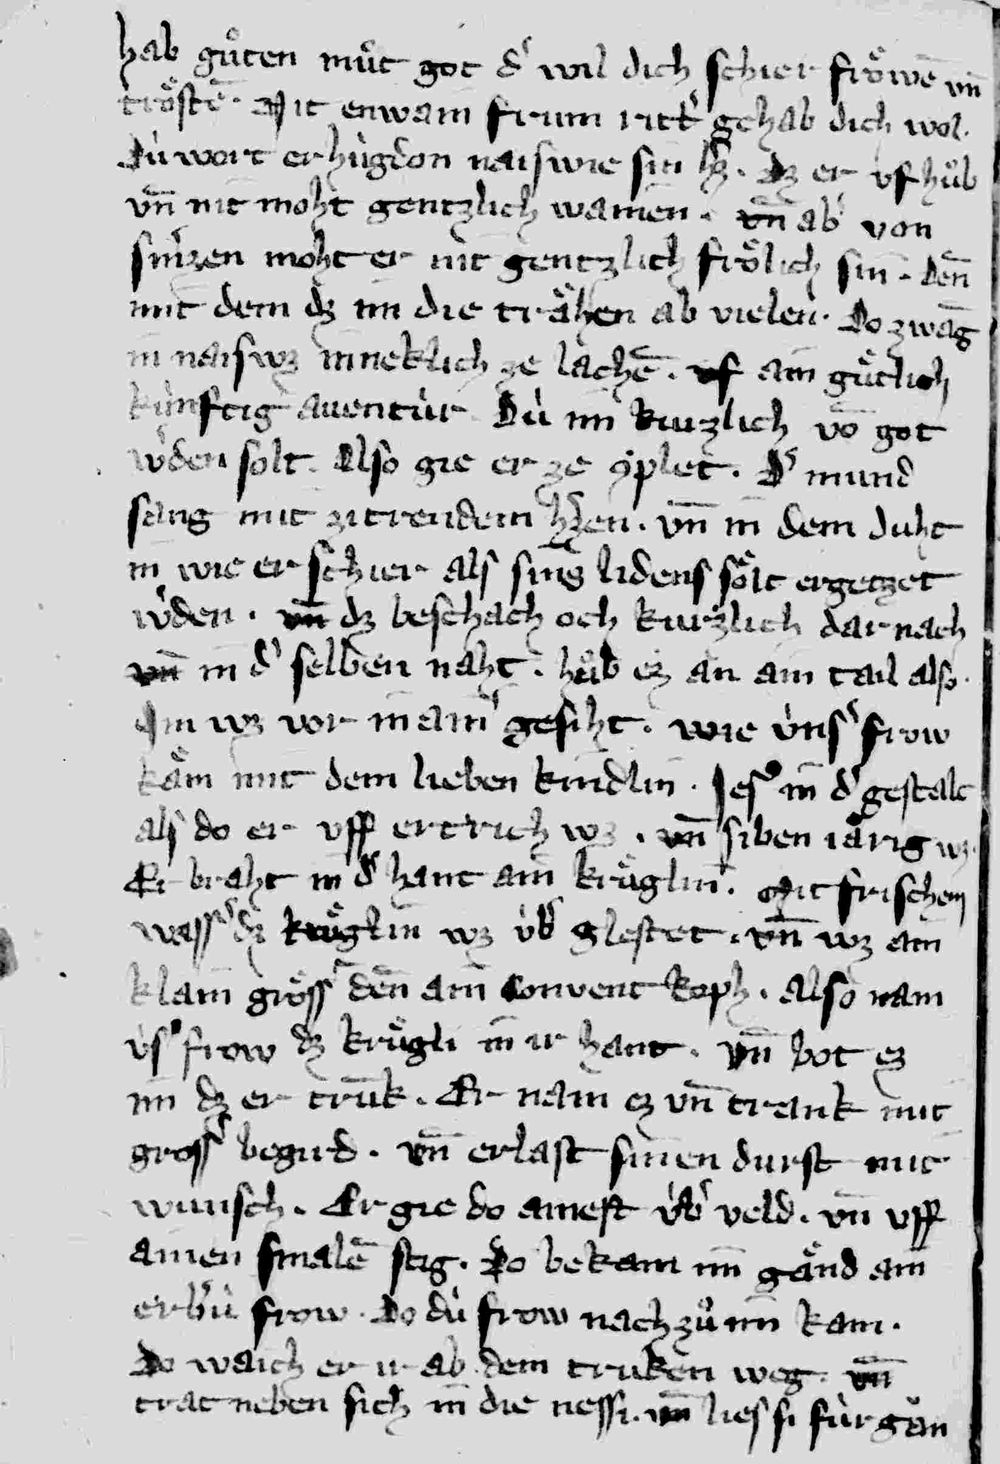 hab gůten můt got dˢ wil dich schier frӧwē vn̄
trӧstē. Nit enwain frum rittˢ gehab dich wol.
Dù wort erhùgdon naiswie sin hˢz. dz er uf hůb
vn̄ nit moht gentzlich wainen. vn̄ abˢ von
smˢzen moht er nit gentzlich frӧlich sin. den̄
mit dem dz im die trӓhen ab vielen. Do zwāg
in naiswz inneklich ze lachē. uf ain gůtlich
kùnftig auentùr Dù im kurzlich vō got
wˢden solt. Also gie er ze ꝯplet. Dˢ mund
sang mit zitrendem hˢzen. vn̄ in dem duht
in wie er schier als sins lidens sӧlt ergetzet
wˢden. vn̄ dz beschach och kurzlich dar nach
vn̄ in dˢ selben naht. hůb ez an ain tail also.
Im wz vor in ainˢ gesiht. wie ùnsˢ frow
kӓm mit dem lieben kindlin. Jesꝰ in dˢ gestalt
als do er uff ertrich wz. vn̄ siben iӓrig wz.
Er braht in dˢ hant ain krůglin. mit frischem
wassˢ dz krůglin wz ùbˢ glestet. vn̄ wz ain
klain grӧssˢ den̄ ain Convent koph. also nam
ùsˢ frow dz krůgli in ir hant. vn̄ bot ez
im dz er trūk. Er nam ez vn̄ trank mit
grossˢ begird. vn̄ erlast sinen durst mit
wunsch. Er gie do ainest ùbˢ veld. vn̄ uff
ainen smalē stig. Do bekam im gӓnd ain
erbˢù frow. Do dù frow nach zů im kam.
Do waich er ir ab dem truken weg. vn̄
trat neben sich in die nessi. vn̄ lies si fùr gӓn